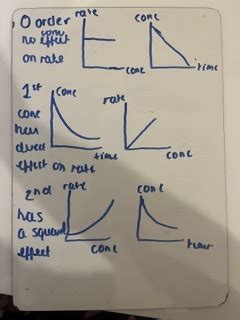 0 order
conc
no effect
on rate
rate
conc
conc
time
1st
conc
has
direct
effect on rate
conc
time
rate
conc
2nd
has
a squared
effect
rate
conc
conc
time